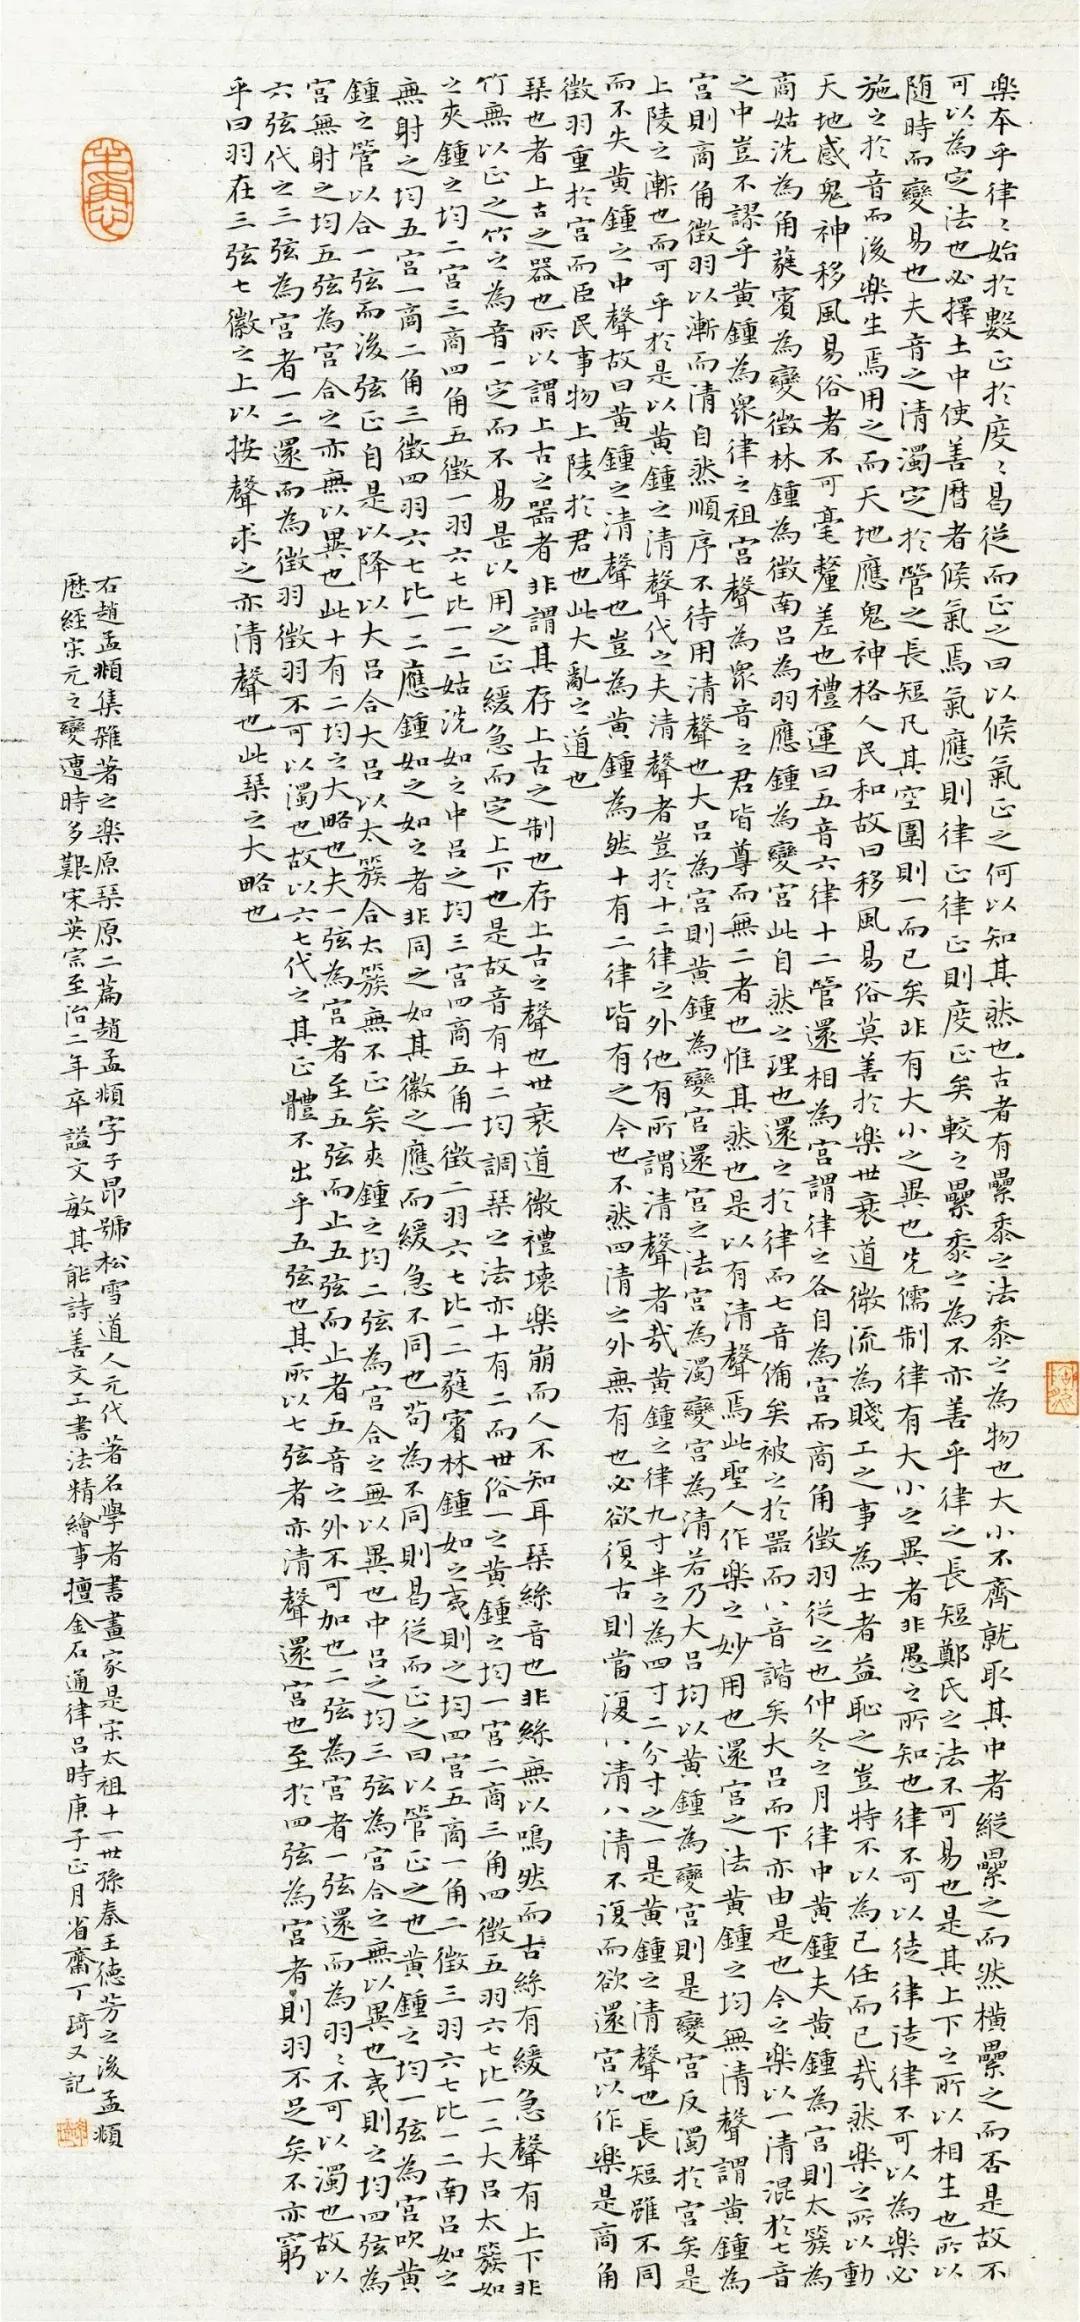 楽本乎律〻始於數正於度〻曷從而正之曰以候氣正之何以知其然也古者有纍黍之法黍之為物也大小不齊就取其中者縱纍之而然橫纍之而否是故不
可以為定法也必擇土中使善曆者候氣焉氣應則律正律正則度正矣較之纍黍之為不亦善乎律之長短鄭氏之法不可易也是其上下之所以相生也所以
隨時而變易也夫音之清濁定於管之長短凡其空圍則一而已矣非有大小之異也先儒制律有大小之異者非愚之所知也律不可以徒律徒律不可以為楽必
施之於音而後楽生焉用之而天地應鬼神格人民和故曰移風易俗莫善於楽世衰道微流為賤工之事為士者益恥之豈特不以為己任而已㢤然楽之所以動
天地感鬼神移風易俗者不可毫釐差也禮運曰五音六律十二管還相為宮謂律之各自為宮而商角徵羽從之也仲冬之月律中黃鍾夫黃鍾為宮則太簇為
商姑洗為角蕤賓為變徵林鍾為徵南呂為羽應鍾為變宮此自然之理也還之於律而七音備矣被之於噐而八音諧矣大呂而下亦由是也今之楽以一清混於七音
之中豈不謬乎黃鍾為眾律之祖宮聲為眾音之君皆尊而無二者也惟其然也是以有清聲焉此聖人作楽之妙用也還宮之法黃鍾之均無清聲謂黃鍾為
宮則商角徵羽以漸而清自然順序不待用清聲也大呂為宮則黃鍾為變宮還宮之法宮為濁變宮為清若乃大呂均以黃鍾為變宮則是變宮反濁於宮矣是
上陵之漸也而可乎於是以黃鍾之清聲代之夫清聲者豈於十二律之外他有所謂清聲者㢤黃鍾之律九寸半之為四寸二分寸之一是黃鍾之清聲也長短雖不同
而不失黃鍾之中聲故曰黃鍾之清聲也豈為黃鍾為然十有二律皆有之今也不然四清之外無有也必欲復古則當復八清八清不復而欲還宮以作楽是商角
徵羽重於宮而臣民事物上陵於君也此大亂之道也
琹也者上古之器也所以謂上古之噐者非謂其存上古之制也存上古之聲也世衰道微禮壞楽崩而人不知耳琹絲音也非絲無以鳴然而古絲有緩急聲有上下非
竹無以正之竹之為音一定而不易是以用之正緩急而定上下也是故音有十二均調琹之法亦十有二而世俗一之黃鍾之均一宮二商三角四徵五羽六七比一二大呂太簇如
之夾鍾之均二宮三商四角五徵一羽六七比一二姑洗如之中呂之均三宮四商五角一徵二羽六七比一二蕤賓林鍾如之夷則之均四宮五商一角二徵三羽六七比一二南呂如之
無射之均五宮一商二角三徵四羽六七比一二應鍾如之如之者非同之如其徽之應而緩急不同也苟為不同則曷從而正之曰以管正之也黃鍾之均一弦為宮吹黃
鍾之管以合一弦而後弦正自是以降以大呂合大呂以太簇合太簇無不正矣夾鍾之均二弦為宮合之無以異也中呂之均三弦為宮合之無以異也夷則之均四弦為
宮無射之均五弦為宮合之亦無以異也此十有二均之大略也夫一弦為宮者至五弦而止五弦而止者五音之外不可加也二弦為宮者一弦還而為羽〻不可以濁也故以
六弦代之三弦為宮者一二還而為徵羽徵羽不可以濁也故以六七代之其正體不出乎五弦也其所以七弦者亦清聲還宮也至於四弦為宮者則羽不足矣不亦窮
乎曰羽在三弦七徽之上以按聲求之亦清聲也此琹之大略也
右趙孟頫集雜著之楽原琹原二篇趙孟頫字子昂號松雪道人元代著名學者書畫家是宋太祖十一世孫秦王德芳之後孟頫
歷經宋元之變遭時多艱宋英宗至治二年卒謚文敏其能詩善文工書法精繪事擅金石通律呂時庚子正月省齋丁琦又記